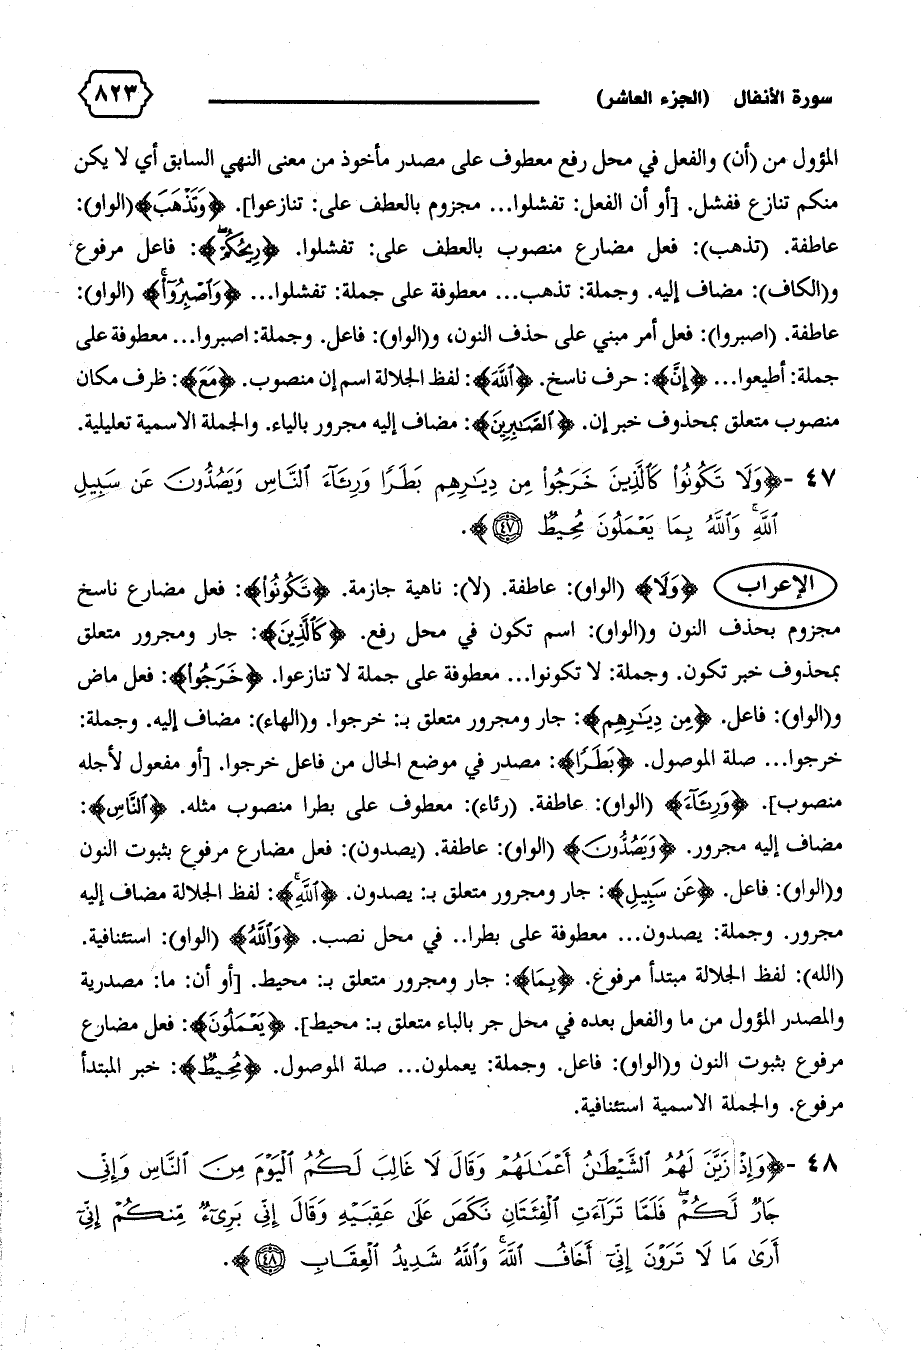 سورة الأنفال (الجزء العاشر) ٨٢٣
المؤول من (أن) والفعل في محل رفع معطوف على مصدر مأخوذ من معنى النهي السابق أي لا يكن
منكم تنازع ففشل. [أو أن الفعل: تفشلوا... مجزوم بالعطف على: تنازعوا]. ﴿وَتَذْهَبَ﴾ (الواو):
عاطفة. (تذهب): فعل مضارع منصوب بالعطف على: تفشلوا. ﴿رِيحُكُمْ ۖ﴾: فاعل مرفوع
و(الكاف): مضاف إليه. وجملة: تذهب... معطوفة على جملة: تفشلوا... ﴿وَٱصْبِرُوٓا۟ ۚ﴾ (الواو):
عاطفة. (اصبروا): فعل أمر مبني على حذف النون، و(الواو): فاعل. وجملة: اصبروا... معطوفة على
جملة: أطيعوا... ﴿إِنَّ﴾: حرف ناسخ. ﴿ٱللَّهَ﴾: لفظ الجلالة اسم إن منصوب. ﴿مَعَ﴾: ظرف مكان
منصوب متعلق بمحذوف خبر إن. ﴿ٱلصَّـٰبِرِينَ﴾: مضاف إليه مجرور بالياء. والجملة الاسمية تعليلية.
٤٧ - ﴿وَلَا تَكُونُوا۟ كَٱلَّذِينَ خَرَجُوا۟ مِن دِيَـٰرِهِم بَطَرًا وَرِئَآءَ ٱلنَّاسِ وَيَصُدُّونَ عَن سَبِيلِ
ٱللَّهِ ۚ وَٱللَّهُ بِمَا يَعْمَلُونَ مُحِيطٌ ٤٧﴾.
الإعراب ﴿وَلَا﴾ (الواو): عاطفة. (لا): ناهية جازمة. ﴿تَكُونُوا۟﴾: فعل مضارع ناسخ
مجزوم بحذف النون و(الواو): اسم تكون في محل رفع. ﴿كَٱلَّذِينَ﴾: جار ومجرور متعلق
بمحذوف خبر تكون. وجملة: لا تكونوا... معطوفة على جملة لا تنازعوا. ﴿خَرَجُوا۟﴾: فعل ماض
و(الواو): فاعل. ﴿مِن دِيَـٰرِهِم﴾: جار ومجرور متعلق بـ: خرجوا. و(الهاء): مضاف إليه. وجملة:
خرجوا... صلة الموصول. ﴿بَطَرًا﴾: مصدر في موضع الحال من فاعل خرجوا. [أو مفعول لأجله
منصوب]. ﴿وَرِئَآءَ﴾ (الواو): عاطفة. (رئاء): معطوف على بطرا منصوب مثله. ﴿ٱلنَّاسِ﴾:
مضاف إليه مجرور. ﴿وَيَصُدُّونَ﴾ (الواو): عاطفة. (يصدون): فعل مضارع مرفوع بثبوت النون
و(الواو): فاعل. ﴿عَن سَبِيلِ﴾: جار ومجرور متعلق بـ: يصدون. ﴿ٱللَّهِ ۚ﴾: لفظ الجلالة مضاف إليه
مجرور. وجملة: يصدون... معطوفة على بطرا.. في محل نصب. ﴿وَٱللَّهُ﴾ (الواو): استئنافية.
(الله): لفظ الجلالة مبتدأ مرفوع. ﴿بِمَا﴾: جار ومجرور متعلق بـ: محيط. [أو أن: ما: مصدرية
والمصدر المؤول من ما والفعل بعده في محل جر بالباء متعلق بـ: محيط]. ﴿يَعْمَلُونَ﴾: فعل مضارع
مرفوع بثبوت النون و(الواو): فاعل. وجملة: يعملون... صلة الموصول. ﴿مُحِيطٌ﴾: خبر المبتدأ
مرفوع. والجملة الاسمية استئنافية.
٤٨ - ﴿وَإِذْ زَيَّنَ لَهُمُ ٱلشَّيْطَـٰنُ أَعْمَـٰلَهُمْ وَقَالَ لَا غَالِبَ لَكُمُ ٱلْيَوْمَ مِنَ ٱلنَّاسِ وَإِنِّى
جَارٌ لَّكُمْ ۖ فَلَمَّا تَرَآءَتِ ٱلْفِئَتَانِ نَكَصَ عَلَىٰ عَقِبَيْهِ وَقَالَ إِنِّى بَرِىٓءٌ مِّنكُمْ إِنِّىٓ
أَرَىٰ مَا لَا تَرَوْنَ إِنِّىٓ أَخَافُ ٱللَّهَ ۚ وَٱللَّهُ شَدِيدُ ٱلْعِقَابِ ٤٨﴾.